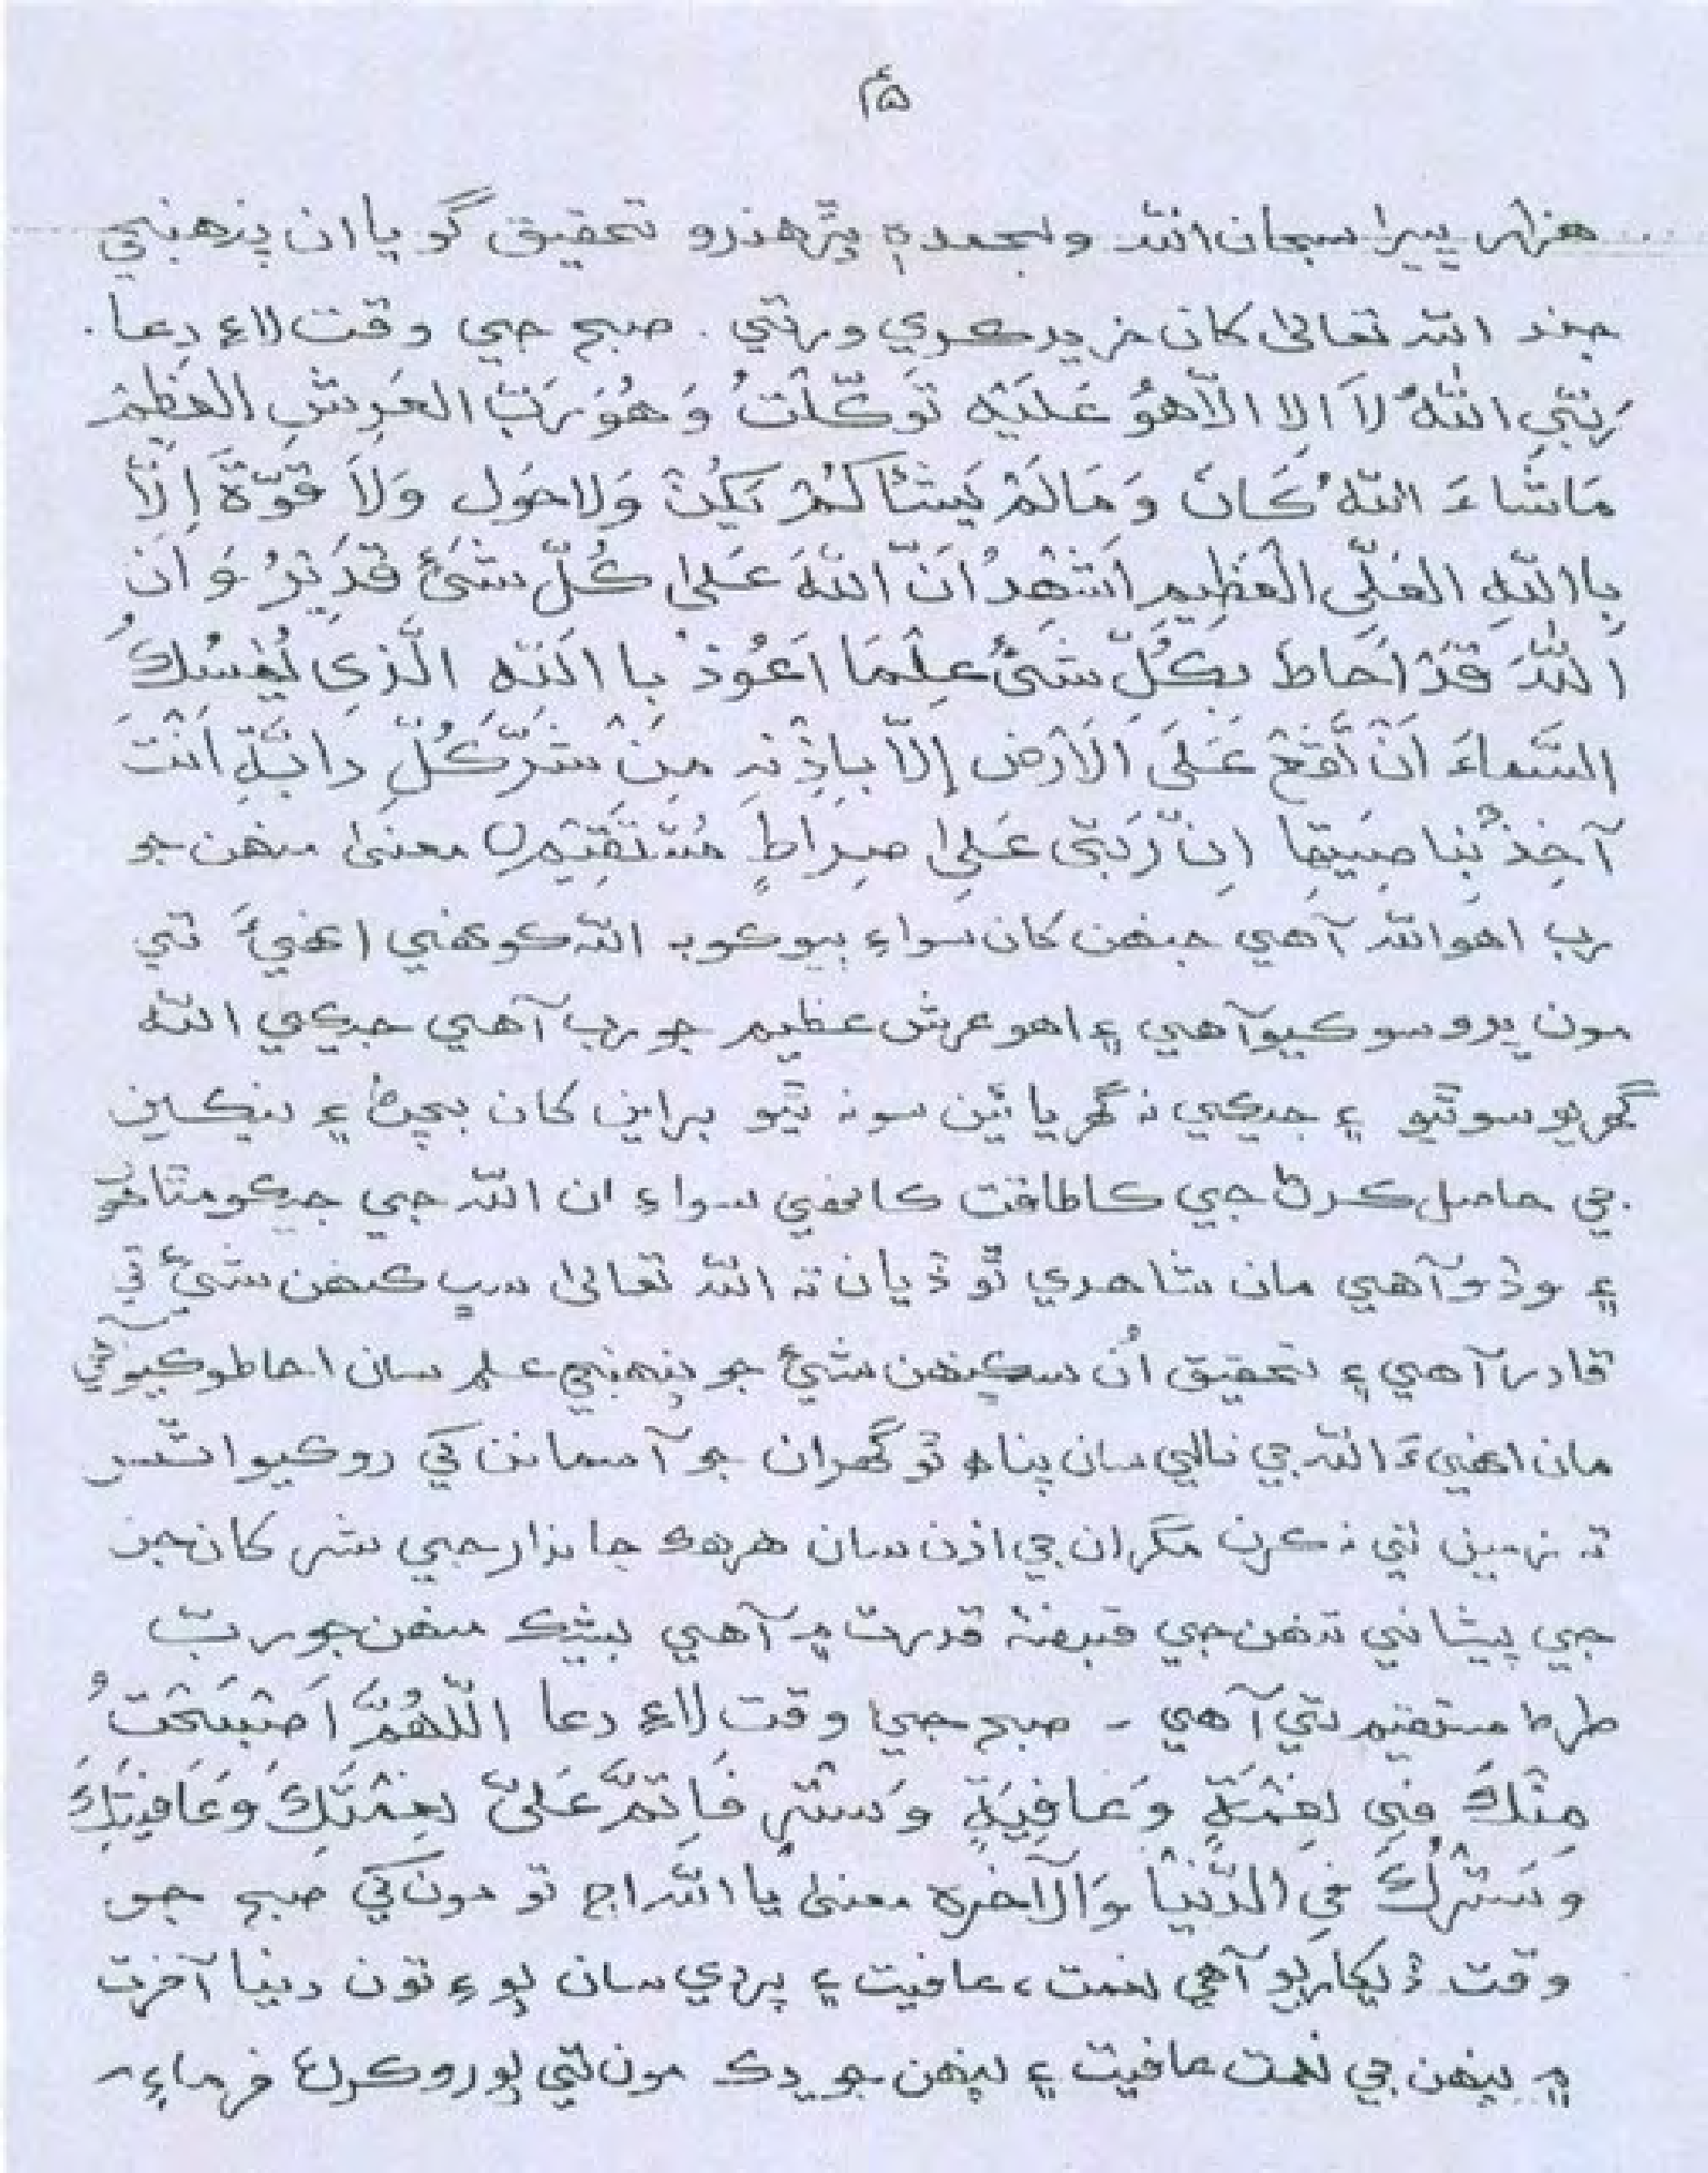 ۴۵
هزار ڀيرا سبحان الله وبحمدہٖ پڙهندو تحقيق گويا ان پنهنجي
جند الله تعاليٰ کان خريد ڪري ورتي . صبح جي وقت لاءِ دعا .
رَبِّيَ اللهُ لآَ اِلٰا اِلّاَهُوُ عَلَيْهِ تَوَكَّلْتُ وَ هُوَ رَبُّ العَرشِ العَظِيْمِ
مَاشَاءَ اللهُ كَانَ وَ مَالَمْ يَشَأ لَمْ يَكُنْ وَلاحَول وَلاَ قُوَّةَ اِلَّا
بِااللهِ العَلِّىِ الْعَظِيمِ اَشْهَدُ اَنَّ اللهَ عَلىٰ كُلِّ شَئٍ قَدِيْرُ وَ اَنَّ
اللهَ قَدْ اَحَاطَ بِكُلِّ شَئٍ عِلْمَا اَعُوْذُ بِا اللهِ الَّذِى يُمْسِكُ
السَّمَاءَ اَنْ تَقَعْ عَلَى الاَرْض اِلاّ بِاِذْنِهٖ مِنْ شَرِّ كُلِّ دَابَّةٍ اَنْتَ
آخِذُ بِنَاصِيَتِهَا اِنَّ رَبِّى عَلىٰ صِرَاطٍ مُسْتَقِيْمِ معنيٰ منهن جو
رب اهو الله آهي جنهن کان سواءِ ٻيو ڪو به الله ڪونهي انهيءَ تي
مون ڀروسو ڪيو آهي ۽ اهو عرش عظيم جو رب آهي جيڪي الله
گهريو سو ٿيو ۽ جيڪي نه گهريائين سو نه ٿيو براين کان بچڻ ۽ نيڪين
جي حاصل ڪرڻ جي ڪا طاقت ڪانهي سواءِ ان الله جي جيڪو مٿاهون
۽ وڏو آهي مان شاهدي ٿو ڏيان ته الله تعاليٰ سڀ ڪنهن شيءِ تي
قادر آهي ۽ تحقيق اُن سڀڪنهن شيءِ جو پنهنجي علم سان احاطو ڪيو
مان انهيءَ الله جي نالي سان پناه ٿو گهران جو آسمانن کي روڪيو اٿس
ته زمين تي نه ڪرن مگر ان جي اذن سان هر هڪ جاندار جي شر کان جن
جي پيشاني تنهن جي قبضئه قدرت ۾ آهي بيشڪ منهن جو رب
طرط مستقيم تي آهي - صبح جي وقت لاءِ دعا اللّٰهُمَّ اَصْبَحْتُ
مِنْكَ فِي نِعْمَةٍ وَ عَافِيَةٍ وَ سَتْرٍ فَاَتِمَّ عَلَىَّ نِعْمَتَكَ وَ عَافِيَتَكَ
وَ سَتْرَكَ فِي الدُّنْيَا وَالآخره معنيٰ يا الله اڄ تو مون کي صبح جو
وقت ڏيکاريو آهي نعمت، عافيت ۽ پردي سان پوءِ تون دنيا آخرت
۾ پنهن جي نعمت عافيت ۽ پنهن جو ڍڪ مون تي پورو ڪرڻ فرماءِ -